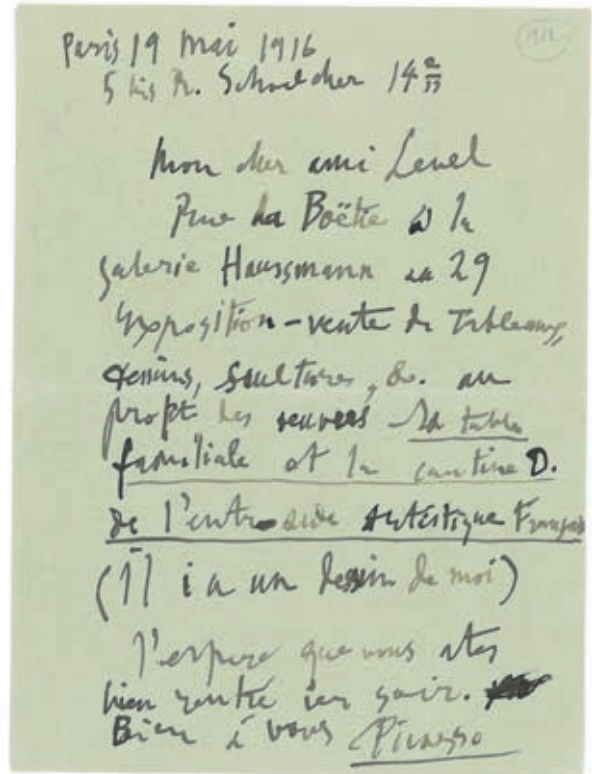 Paris 19 Mai 1916
5 bis R. Schoelcher 14e
Mon cher ami Level
Rue La Boëtie à la
galerie Haussmann au 29
exposition-vente de Tableaux,
dessins, scultures, &. au
profit des œuvres la table
familiale et la cantine D.
de l'entr-aide Artistique Français
(Il i a un dessin de moi)
J'espere que vous etes
bien rentré ier soir.
Bien à vous Picasso